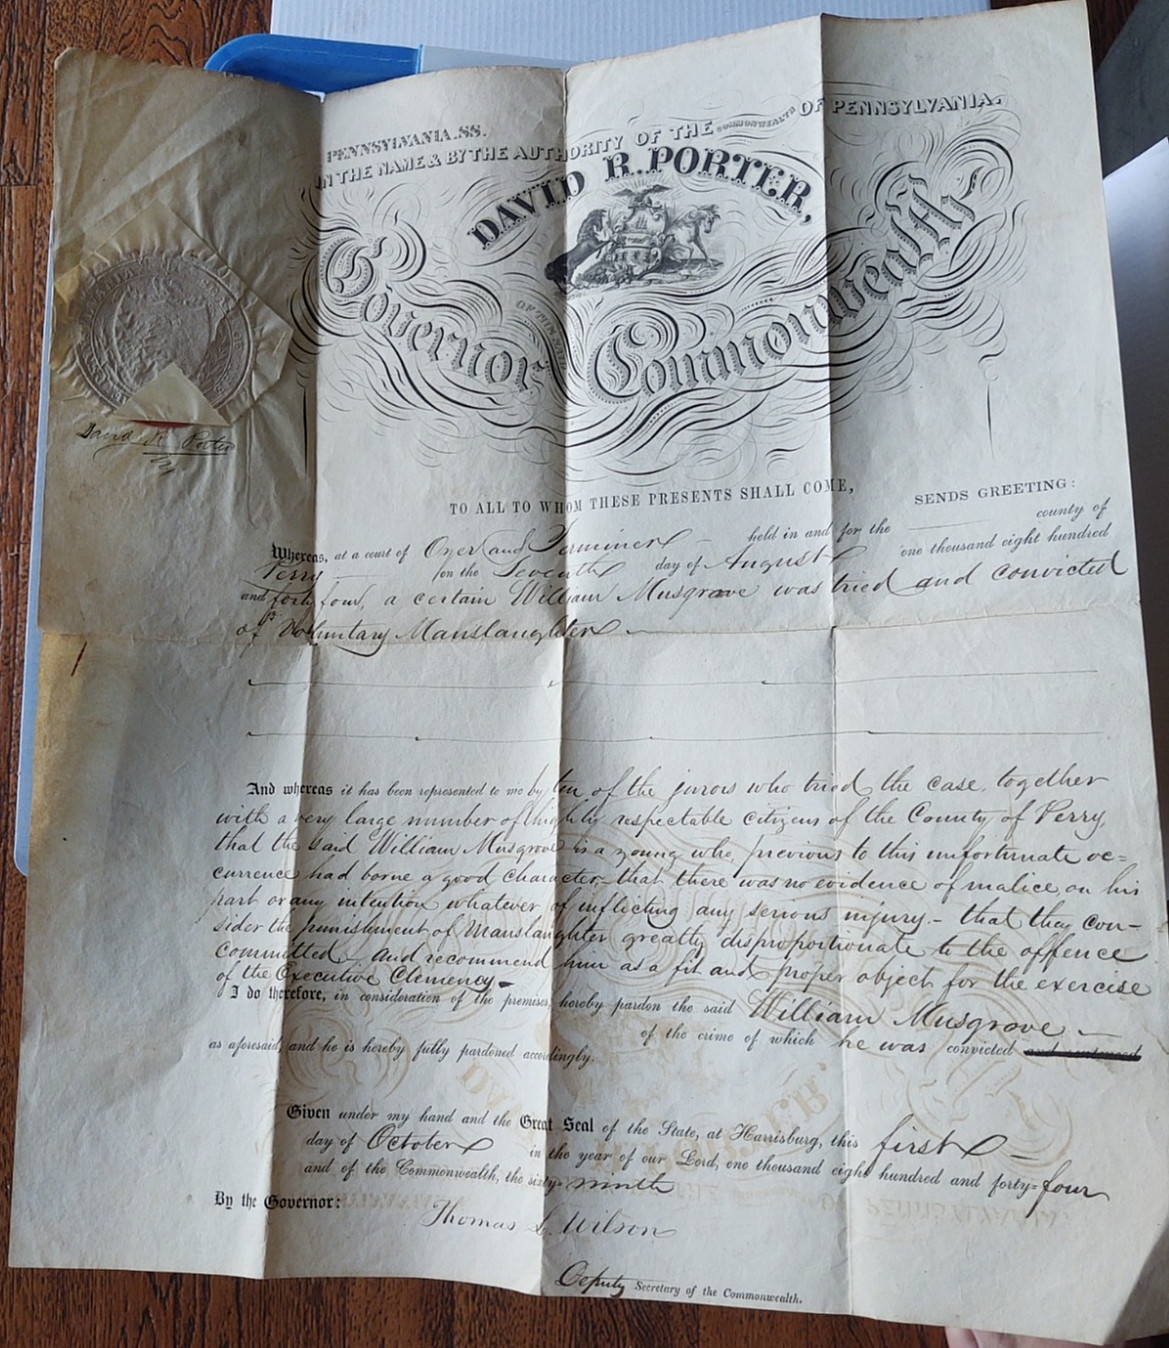 PENNSYLVANIA.SS.
IN THE NAME & BY THE AUTHORITY OF THE COMMONWEALTH OF PENNSYLVANIA.
DAVID R. PORTER,
Governor OF THIS Commonwealth
David R. Porter
TO ALL TO WHOM THESE PRESENTS SHALL COME, SENDS GREETING:
Whereas, at a court of Oyer and Terminer held in and for the county of
Perry on the Seventh day of August one thousand eight hundred
and forty four, a certain William Musgrave was tried and convicted
of Voluntary Manslaughter
And whereas it has been represented to me by ten of the jurors who tried the case, together
with a very large number of highly respectable citizens of the County of Perry,
that the said William Musgrove is a young who, previous to this unfortunate oc=
currence had borne a good character - that there was no evidence of malice on his
part or any intention whatever of inflicting any serious injury. - that they con-
sider the punishment of Manslaughter greatly disproportionate to the offence
committed - and recommend him as a fit and proper object for the exercise
of the Executive Clemency -
I do therefore, in consideration of the premises, hereby pardon the said William Musgrove
of the crime of which he was convicted and sentenced
as aforesaid, and he is hereby fully pardoned accordingly.
Given under my hand and the Great Seal of the State, at Harrisburg, this first
day of October in the year of our Lord, one thousand eight hundred and forty=four
and of the Commonwealth, the sixty=ninth
By the Governor:
Thomas L. Wilson
Deputy Secretary of the Commonwealth.